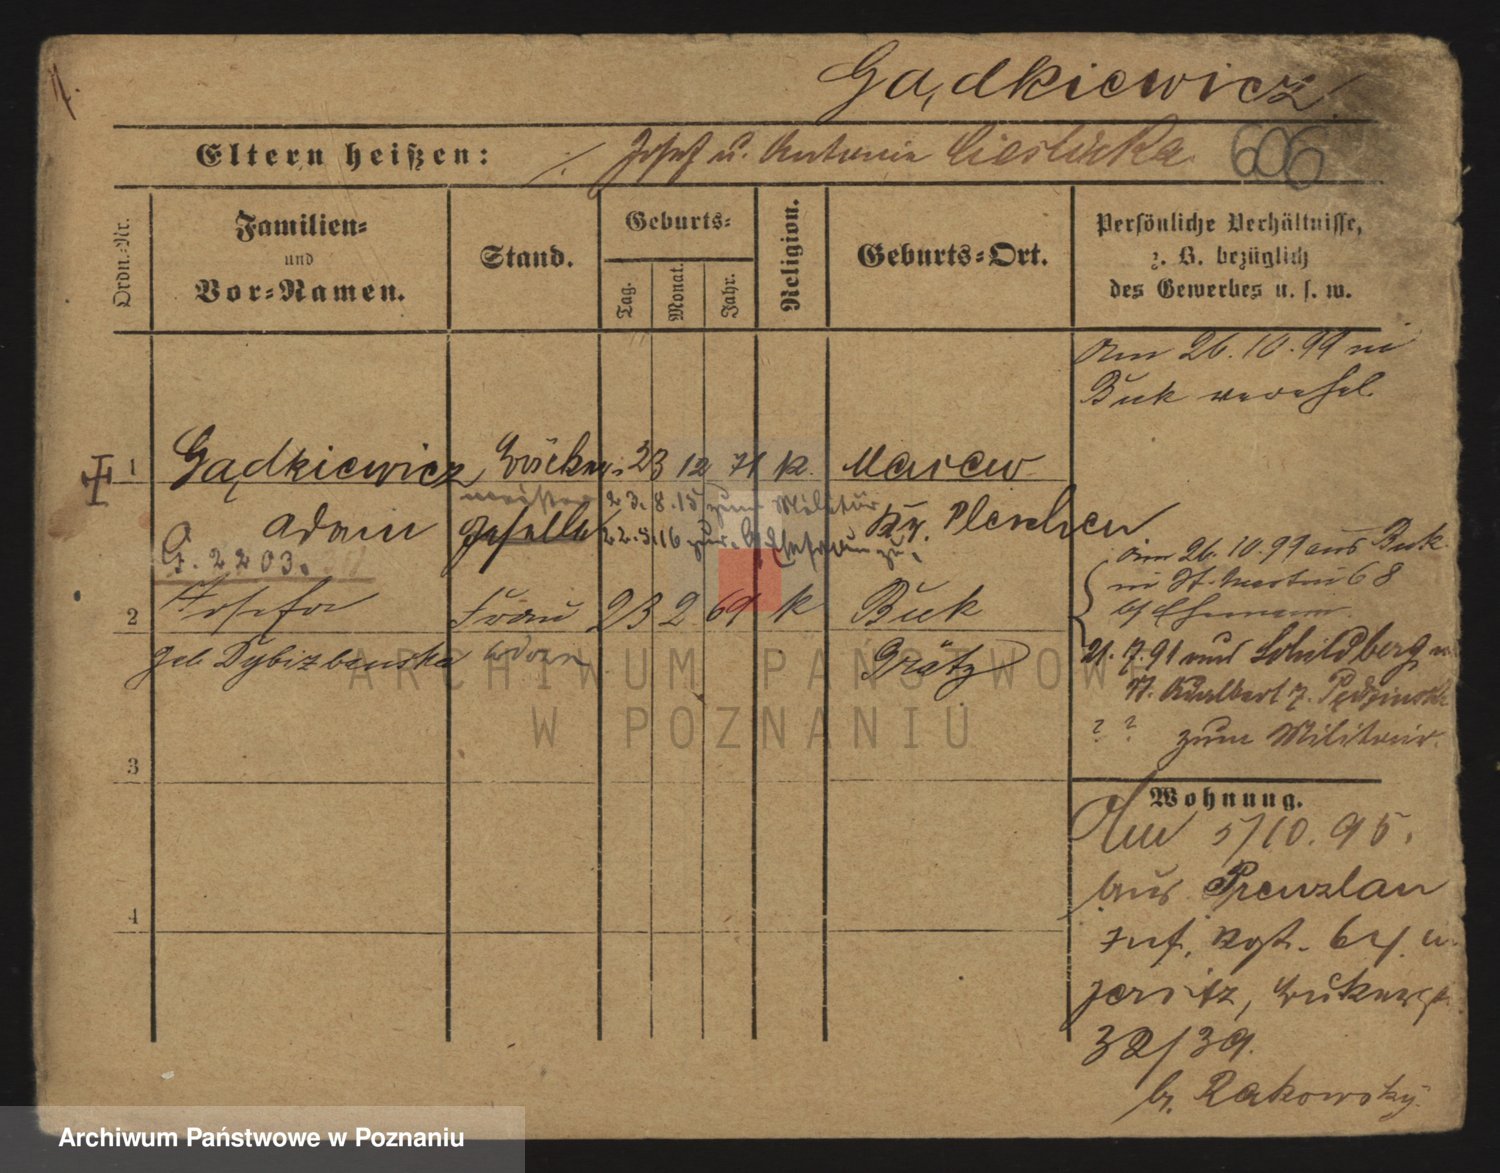 Gadkiewicz
Eltern heißen: Josef u. Antonie Cieslicka 606
Ordn.-Nr.
Familien- und Vor-Namen.
Stand.
Geburts-
Tag. Monat. Jahr.
Religion.
Geburts-Ort.
Persönliche Verhältnisse,
z. B. bezüglich
des Gewerbes u. s. w.
Am 26.10.99 in
Buk verehel.
1 Gądkiewicz Böcker 23 12 71 k. Marcew
meister 23.8.15 zum Militär
Adam geselle Kr. Pleschen
22.3.16 zur.
G. 2203.
am 26.10.99 aus Buk
in St. Martin 68
b/ Ehemann
2 Josefa Frau 23 2 69 k Buk
geb Dybizbanska Grätz
21.7.91 Schildberg
St. Adalbert 7.
? ? zum Militair.
3
Wohnung.
Am 5/10.95.
aus Prenzlau
4
Inf. Rgt. 64.
Jersitz,
38/39.
b. Rakowsky
ARCHIWUM PAŃSTWOWE
W POZNANIU
Archiwum Państwowe w Poznaniu